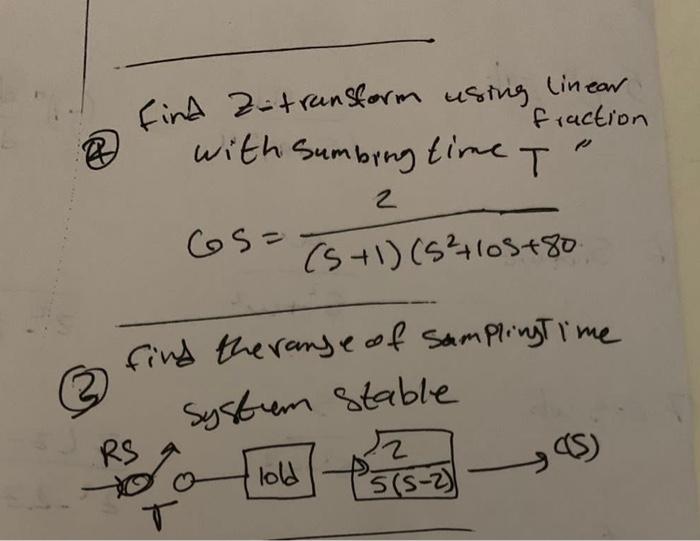 ④ Find Z-transform using linear
fraction
with sumbing time T "
GS = 2 / (S+1)(S²+10S+80
③ find the range of sampling Time
system stable
RS
T
hold
2 / S(S-2)
C(S)